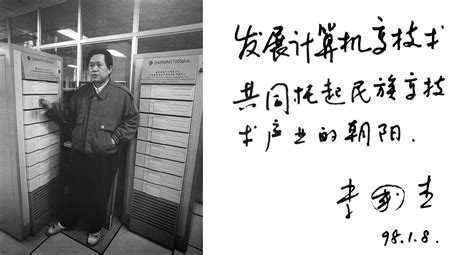 DAWNING 1000
DAWNING 1000plus
发展计算机高技术
共同托起民族高技
术产业的朝阳.
李国杰
98.1.8.